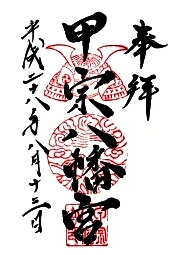 奉拝
甲宗八幡宮
平成二十八年八月十三日